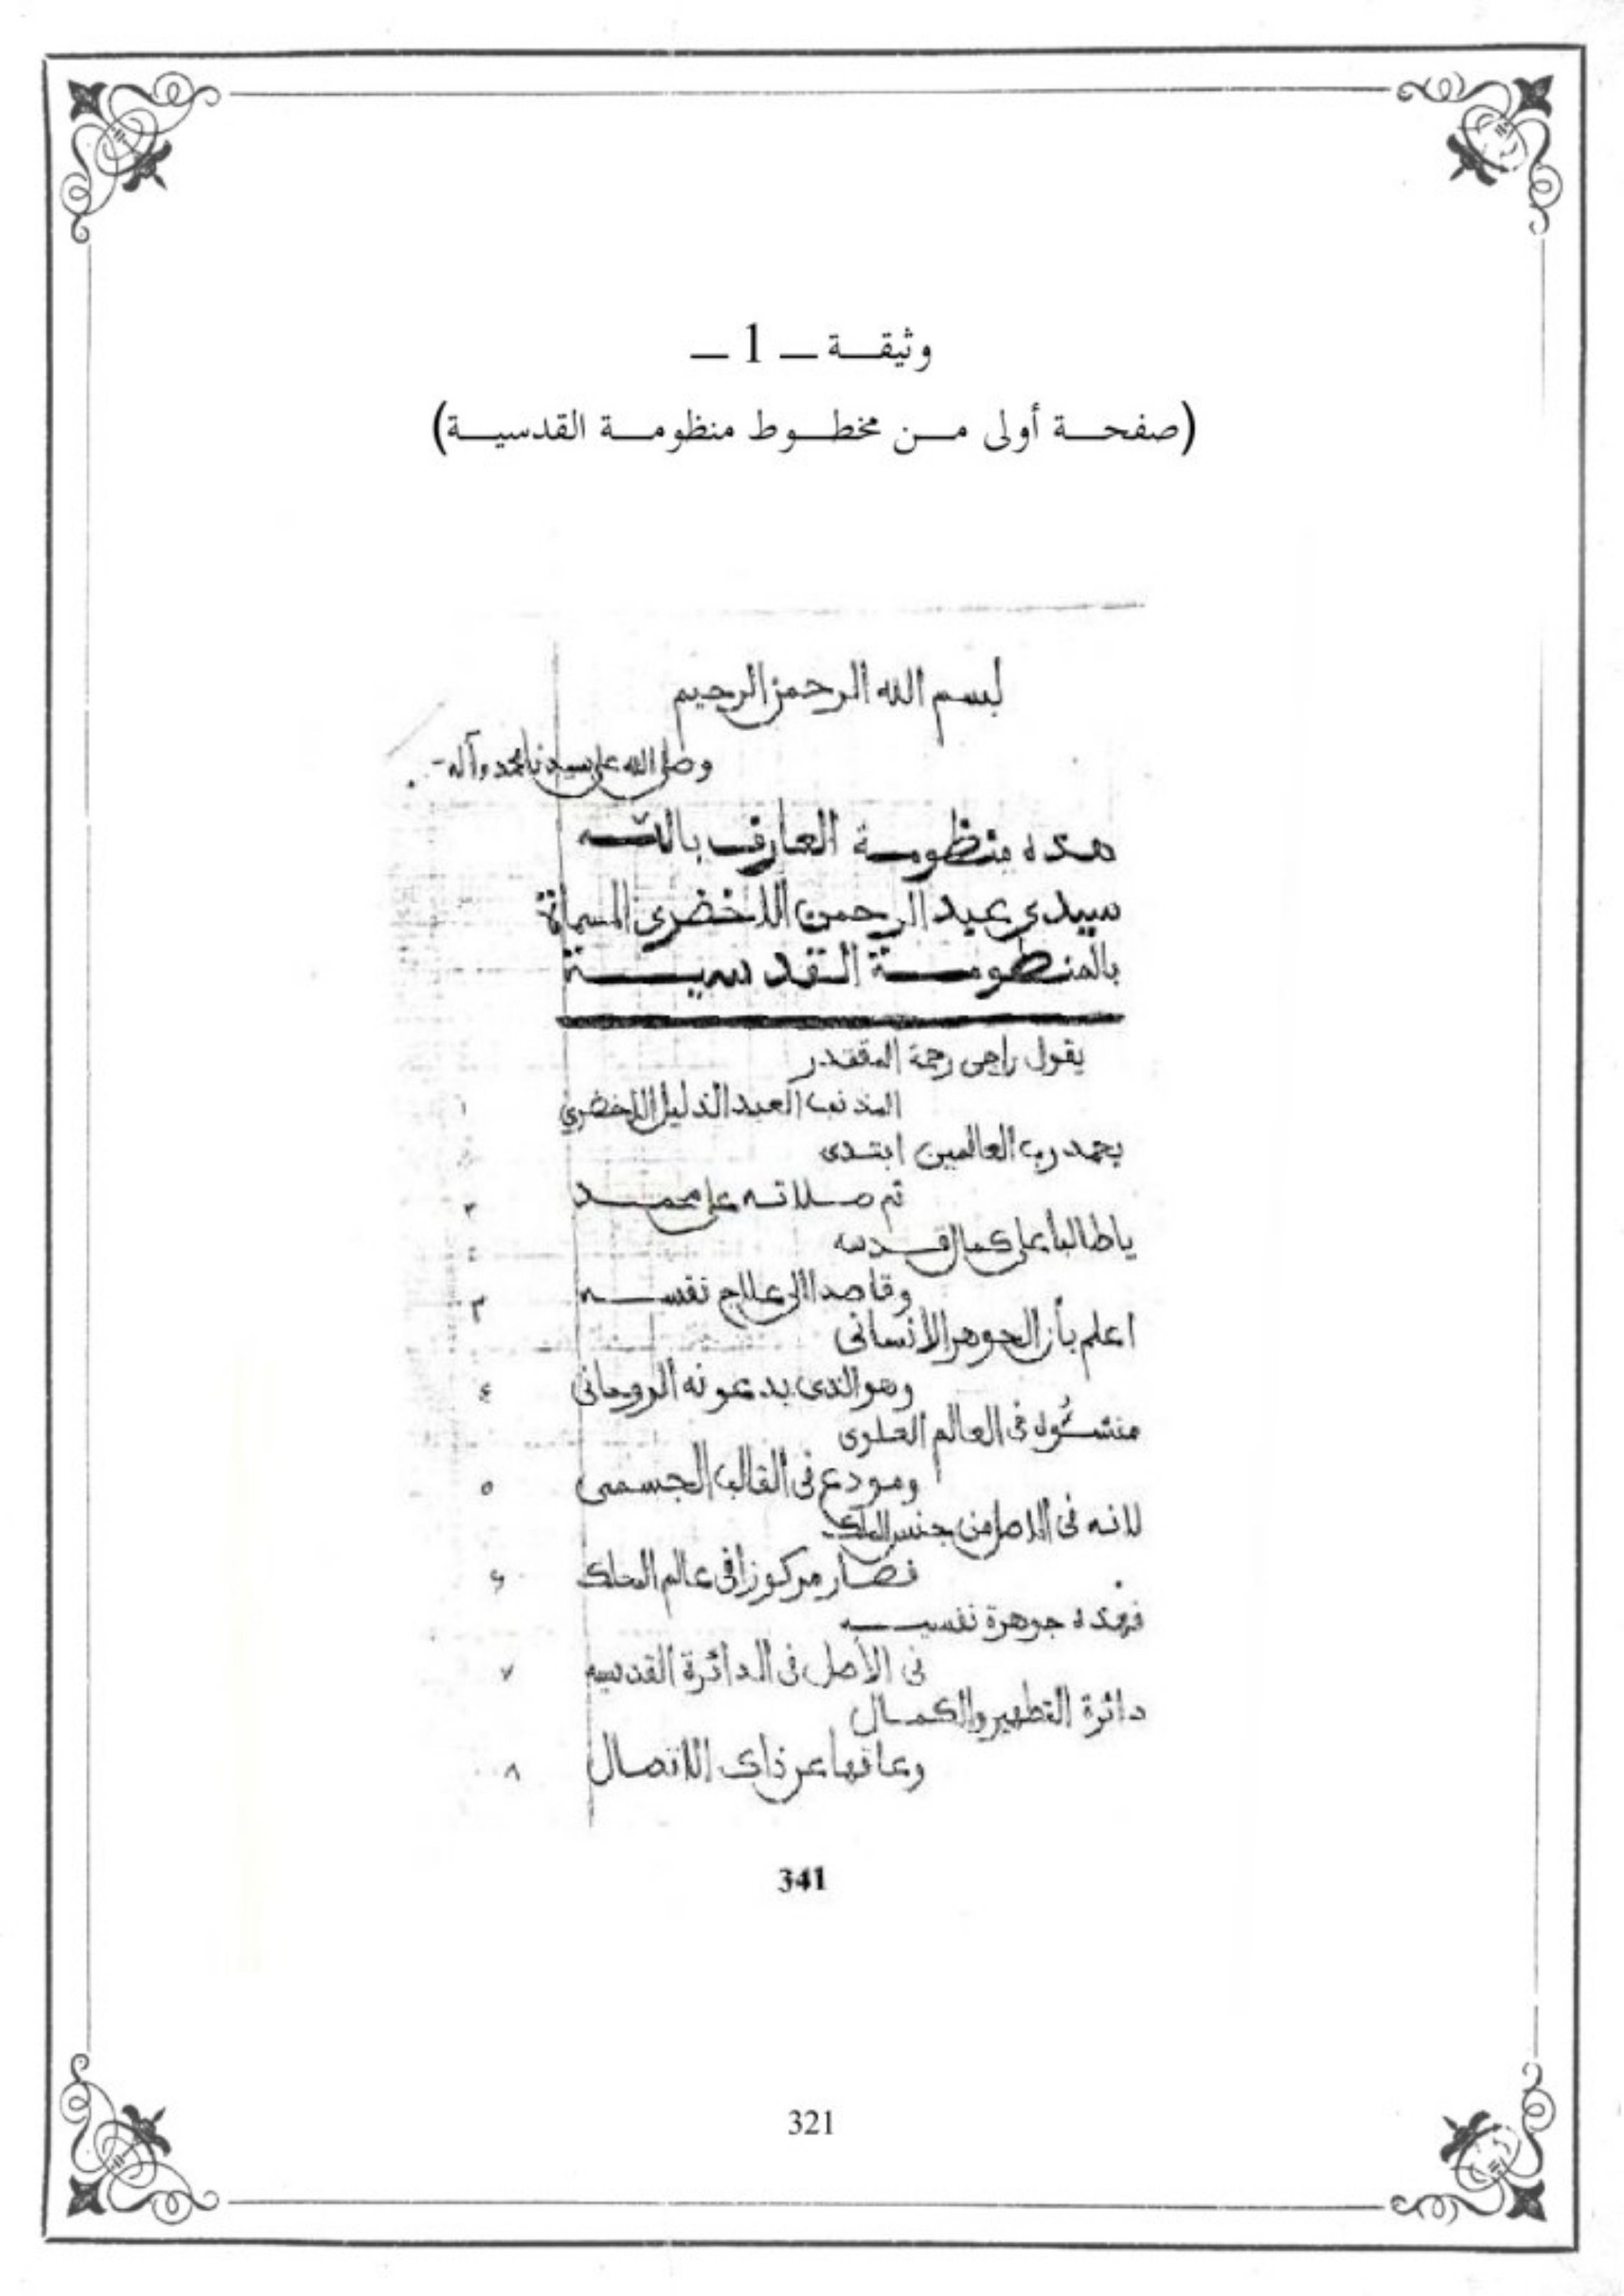 وثيقة – 1 –
(صفحة أولى من مخطوط منظومة القدسية)
بسم الله الرحمن الرحيم
وصلى الله على سيدنا محمد وآله -
هذه منظومة العارف بالله
سيدي عبد الرحمن الاخضري المسماة
بالمنظومة القدسية
يقول راجى رحمة المقتدر
المذنب العبد الذليل الاخضري ١
بحمد رب العالمين ابتدى
ثم صلاته على محمد ٢
ياطالبا على كمال قدسه
وقاصدا الى علاج نفسه ٣
اعلم بأن الجوهر الأنسانى
وهو الذى يدعونه الروحانى ٤
منشؤه فى العالم العلوى
ومودع فى القالب الجسمى ٥
لانه فى الاصل من جنس الملك
فصار مركوزا فى عالم الحلك ٦
فهذه جوهرة نفسيه
فى الأصل فى الدائرة القدسيه ٧
دائرة التطهير والكمال
وعاقها عن ذاك الاتصال ٨
341
321